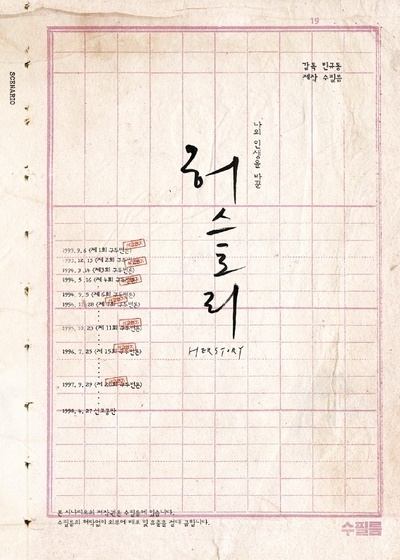 19
SCENARIO
감독 민규동
제작 수필름
나의 인생을 바꿀
허스토리
HERSTORY
1993. 9. 6 (제 1회 구두변론)
1993. 12. 13 (제 2회 구두변론)
1994. 3. 14 (제3회 구두변론)
1994. 5. 16 (제 4회 구두변론)
1994. 9. 5 (제 6회 구두변론)
1994. 11. 28 (제 7회 구두변론)
1995. 10. 23 (제 11회 구두변론)
1996. 9. 25 (제 15회 구두변론)
1997. 9. 29 (제 20회 구두변론)
1998. 4. 27 선고공판
본 시나리오의 저작권은 수필름에 있습니다.
수필름의 허락없이 외부에 배포 및 유출을 절대 금합니다.
수필름